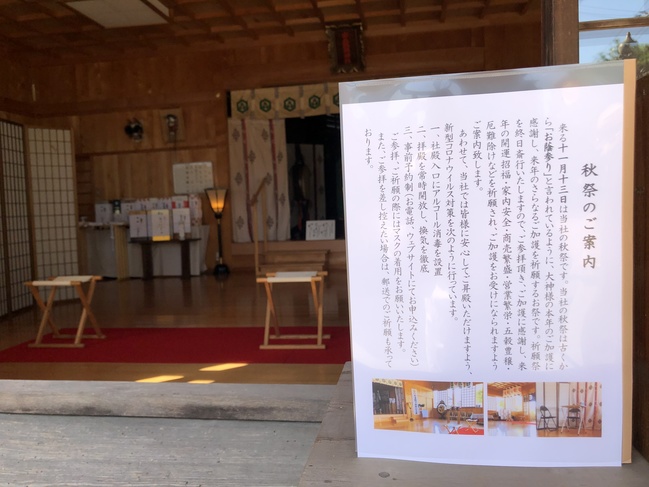 秋祭のご案内
来る十一月十三日は当社の秋祭です。当社の秋祭は古くか
ら「お蔭参り」と言われているように、大神様の本年のご加護に
感謝し、来年のさらなるご加護を祈願するお祭です。祈願祭
を終日斎行いたしますので、ご参拝頂き、ご加護に感謝し、来
年の開運招福・家内安全・商売繁盛・営業繁栄・五穀豊穣・
厄難除けなどを祈願され、ご加護をお受けになられますよう
ご案内致します。
あわせて、当社では皆様に安心してご昇殿いただけますよう、
新型コロナウイルス対策を次のように行っています。
一、社殿入口にアルコール消毒を設置
二、拝殿を常時開放し、換気を徹底
三、事前予約制（お電話、ウェブサイトにてお申込みください）
ご参拝、ご祈願の際にはマスクの着用をお願いいたします。
また、ご参拝を差し控えたい場合は、郵送でのご祈願も承って
おります。